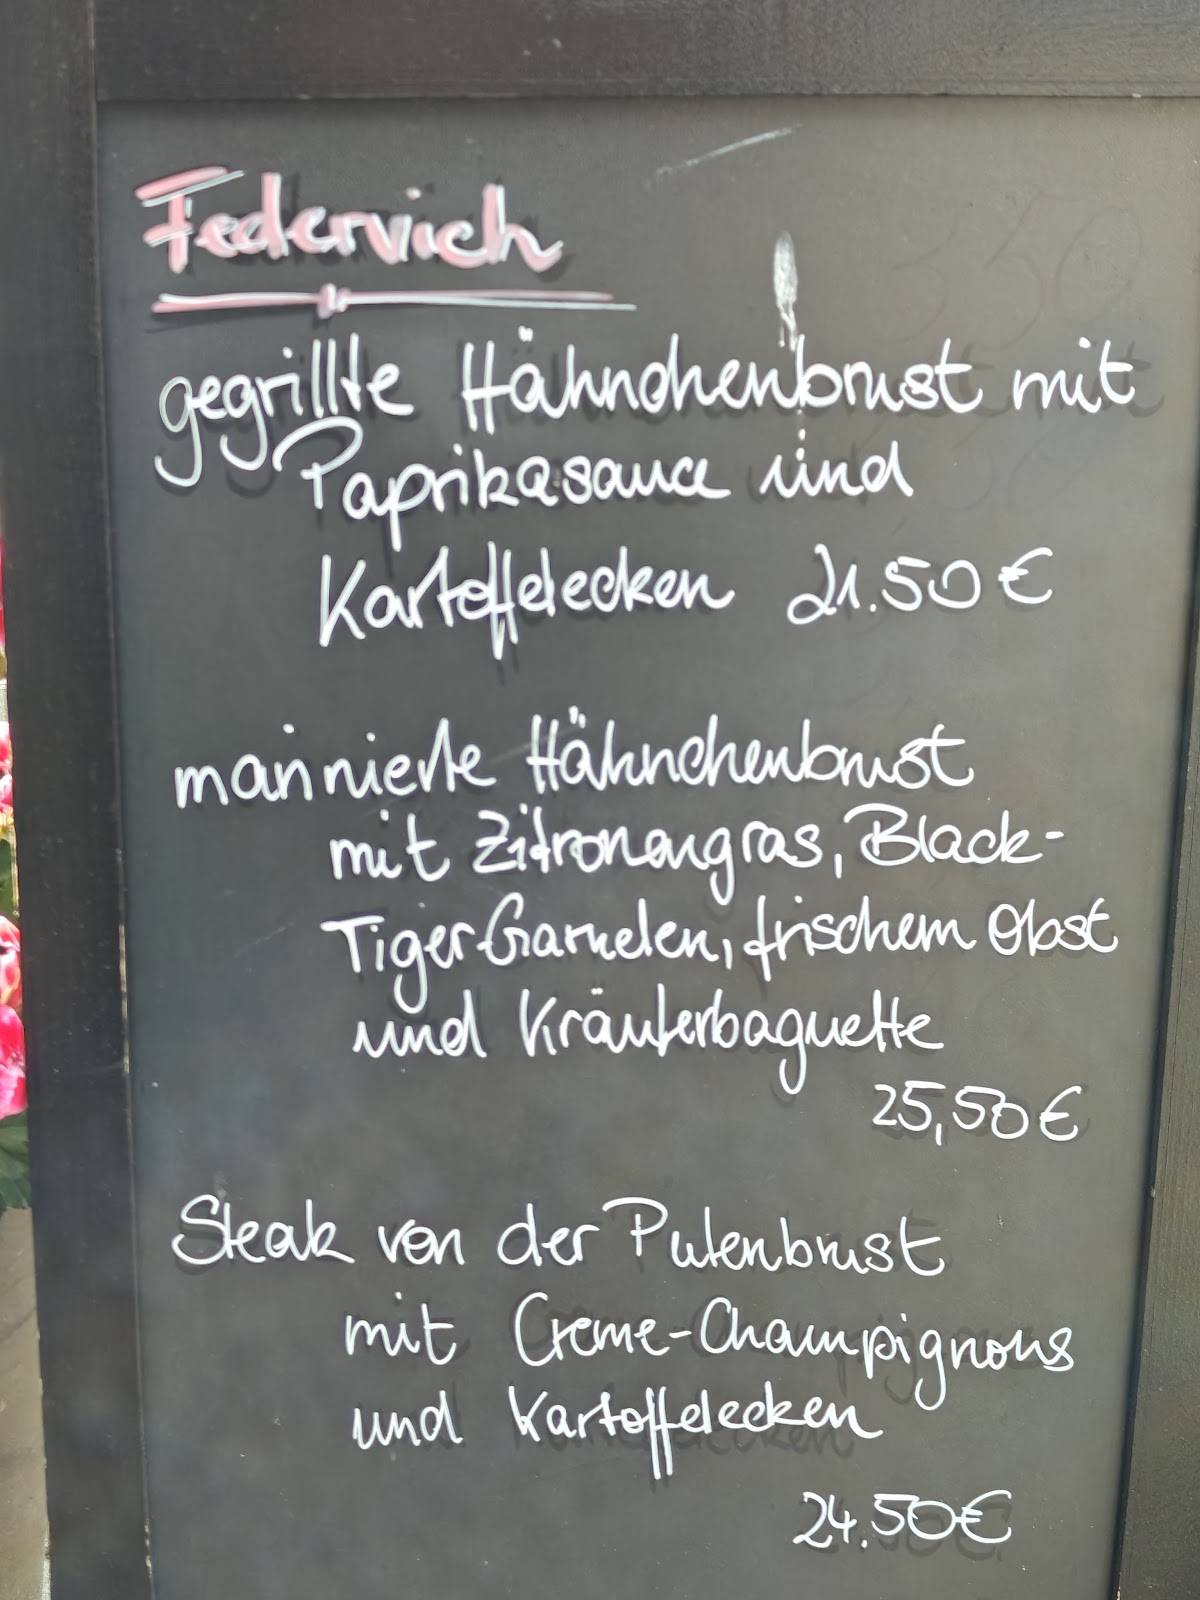 Federvieh
gegrillte Hähnchenbrust mit
Paprikasauce und
Kartoffelecken 21.50 €
marinierte Hähnchenbrust
mit Zitronengras, Black-
Tiger-Garnelen, frischem Obst
und Kräuterbaguette
25,50 €
Steak von der Putenbrust
mit Creme-Champignons
und Kartoffelecken
24.50 €